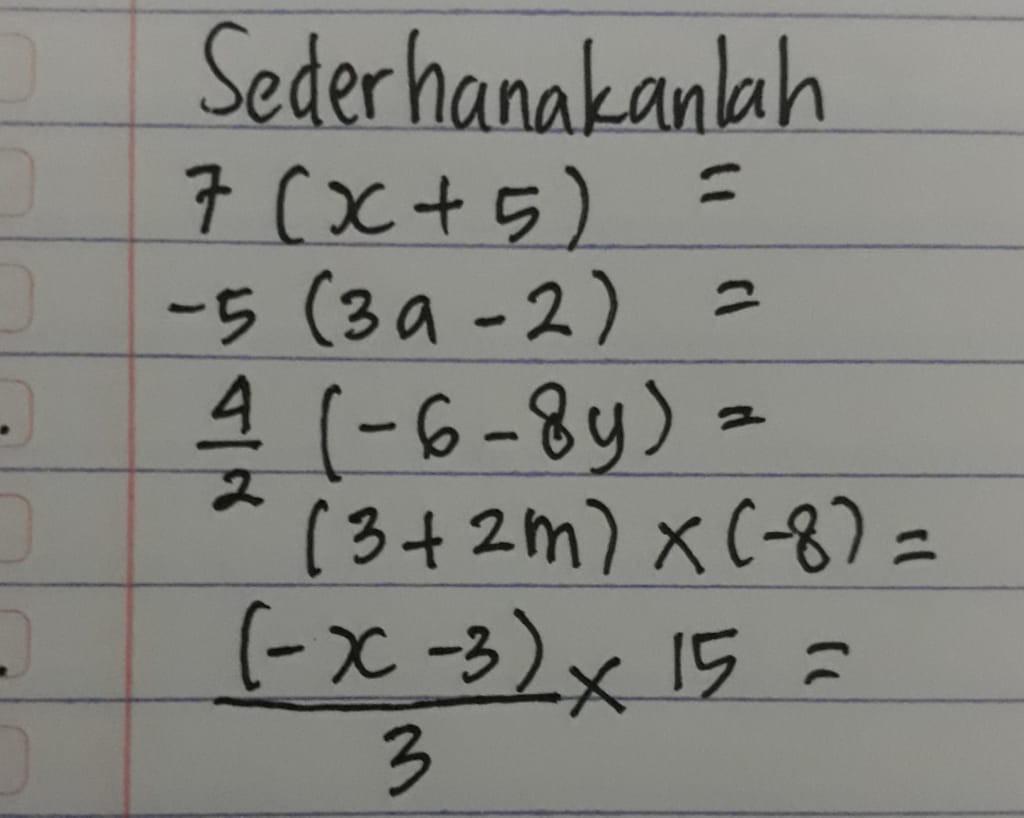 Sederhanakanlah
7 (x + 5) =
-5 (3a - 2) =
4/2 (-6 - 8y) =
(3 + 2m) × (-8) =
(-x - 3)/3 × 15 =